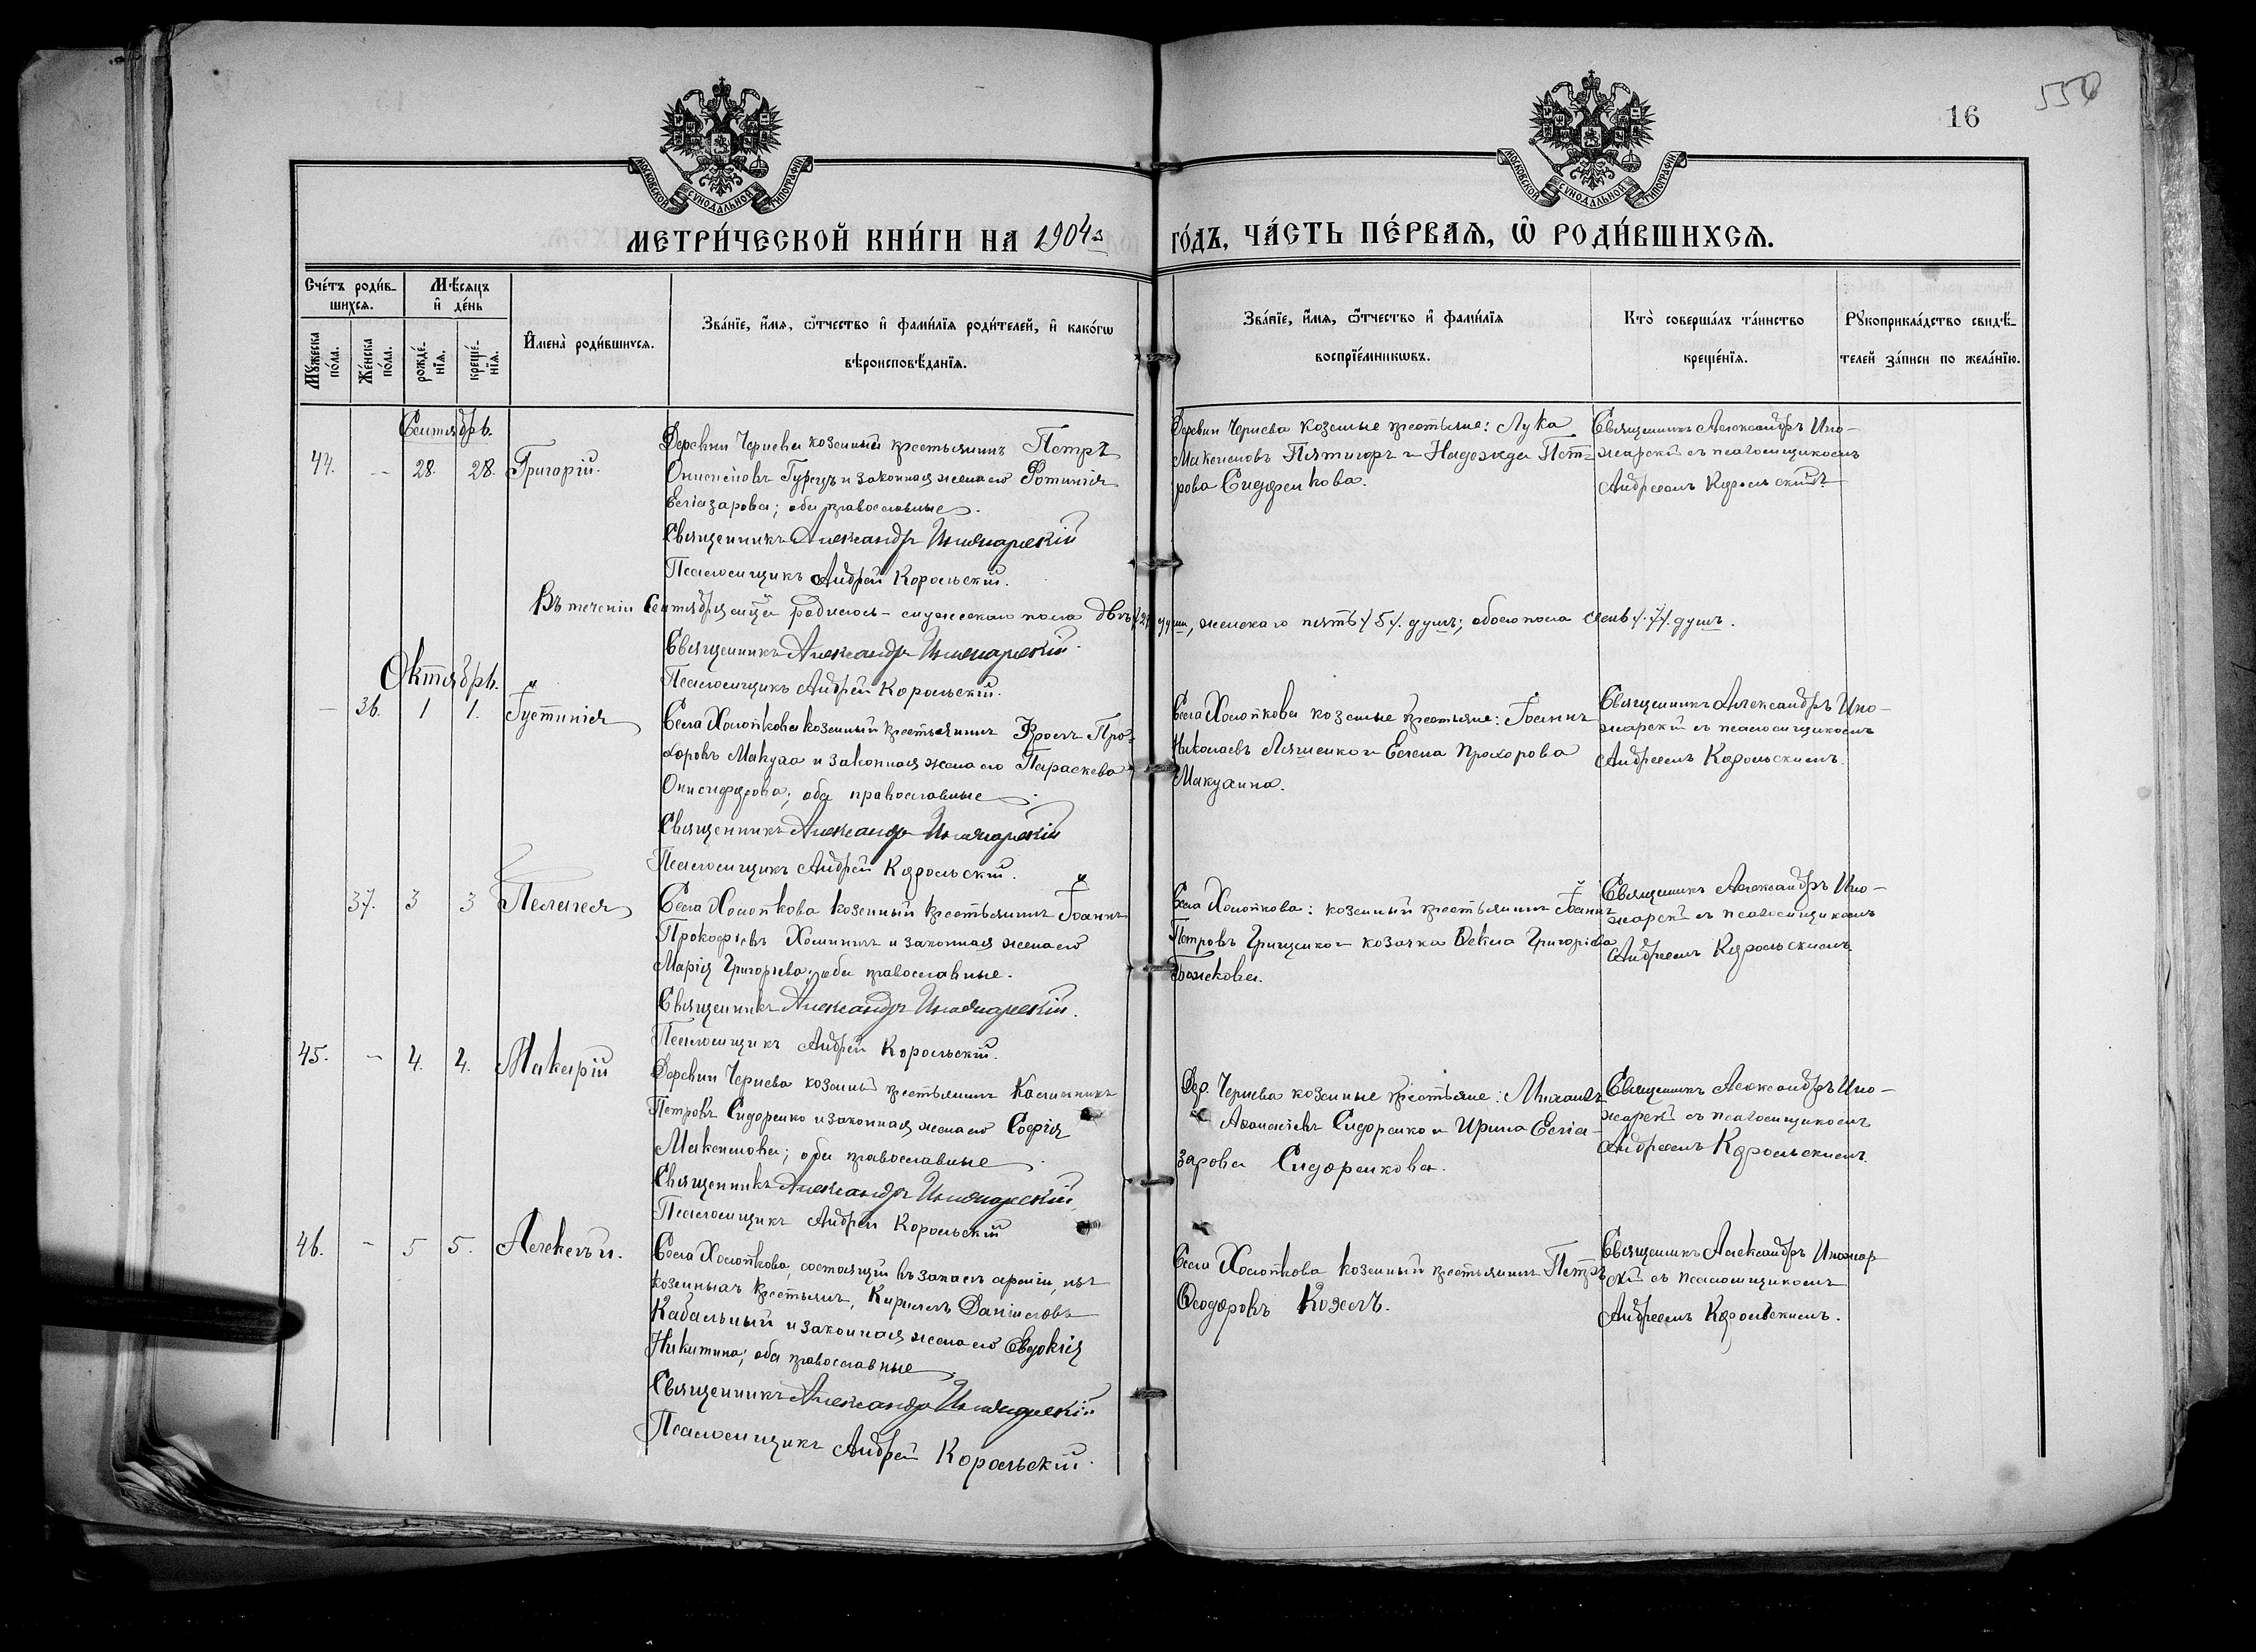 16
550
МОСКОВСКОЙ СѴНОДАЛЬНОЙ ТИПОГРАФІИ
МОСКОВСКОЙ СѴНОДАЛЬНОЙ ТИПОГРАФІИ
МЕТРИ́ЧЕСКОЙ КНИ́ГИ НА 1904й
ГО́ДЪ, ЧА́СТЬ ПЕ́РВАѦ, Ѡ҆ РОДИ́ВШИХСѦ.
Сче́тъ роди́в-
шихсѧ.
Мѣ́сѧцъ
и҆ де́нь
Мꙋ́жеска
по́ла.
Же́нска
по́ла.
рожде́-
нїѧ.
креще́-
нїѧ.
И҆мена̀ роди́вшихсѧ.
Зва́нїе, и҆́мѧ, ѻ҆́тчество и҆ фами́лїѧ роди́телей, и҆ како́гѡ
вѣроисповѣ́данїѧ.
Зва́нїе, и҆́мѧ, ѻ҆́тчество и҆ фами́лїѧ
воспрїе́мникѡвъ.
Кто̀ соверша́лъ та́инство
креще́нїѧ.
Рꙋкоприкла́дство свидѣ́-
телей за́писи по жела́нїю.
Сентябрь.
44. - 28. 28. Григорій.
Деревни Чернева козенный крестьянинъ Петръ
Онисимовъ и законная жена его Фотинія
Еліазарова; оба православные.
Священникъ Александръ Иножарскій
Псаломщикъ Андрей Корольскій.
Деревни Чернева козенные крестьяне: Лука
Максимовъ Пятигоръ и Надежда Пет-
рова Сидоренкова.
Священникъ Александръ Ино-
жарскій съ псаломщикомъ
Андреемъ Корольскимъ
Въ теченіи Сентября мца родилось - мужескаго пола двѣ /2/ души, женскаго пять /5/. душъ; обоего пола семь /7/. душъ.
Священникъ Александръ Иножарскій.
Псаломщикъ Андрей Корольскій.
Октябрь.
- 36. 1 1. Іустинія
Села Холопкова козенный крестьянинъ Фролъ Про-
хоровъ Макуха и законная жена его Параскева
Онисифорова; оба православные.
Священникъ Александръ Иножарскій
Псаломщикъ Андрей Корольскій.
Села Холопкова козенные крестьяне: Іоаннъ
Николаевъ Ляшенко и Елена Прохорова
Макухина.
Священникъ Александръ Ино-
жарскій съ псаломщикомъ
Андреемъ Корольскимъ.
37. 3 3 Пелагея
Села Холопкова козенный крестьянинъ Іоаннъ
Прокофіевъ Хоминичъ и законная жена его
Марія Григорьева; оба православные.
Священникъ Александръ Иножарскій.
Псаломщикъ Андрей Корольскій.
Села Холопкова: козенный крестьянинъ Іоаннъ
Петровъ Грищенко и козачка Ѳекла Григоріева
Священникъ Александръ Ино-
жарскій съ псаломщикомъ
Андреемъ Корольскимъ.
45. - 4. 4. Макарій
Деревни Чернева козенный крестьянинъ Каллиникъ
Петровъ Сидоренко и законная жена его Софія
Максимова; оба православные.
Священникъ Александръ Иножарскій.
Псаломщикъ Андрей Корольскій
Дер. Чернева козенные крестьяне: Михаилъ
Сидоренко и Ирина Еліа-
зарова Сидоренкова.
Священникъ Александръ Ино-
жарскій съ псаломщикомъ
Андреемъ Корольскимъ.
46. - 5 5. Алексѣй.
Села Холопкова, состоящій въ запасѣ арміи, изъ
козенныхъ крестьянъ, Кириллъ Даніиловъ
Кабальный и законная жена его Евдокія
Никитина; оба православные
Священникъ Александръ Иножарскій
Псаломщикъ Андрей Корольскій.
Села Холопкова козенный крестьянинъ Петръ
Ѳеодоровъ Козелъ.
Священникъ Александръ Иножар-
скій съ псаломщикомъ
Андреемъ Корольскимъ.